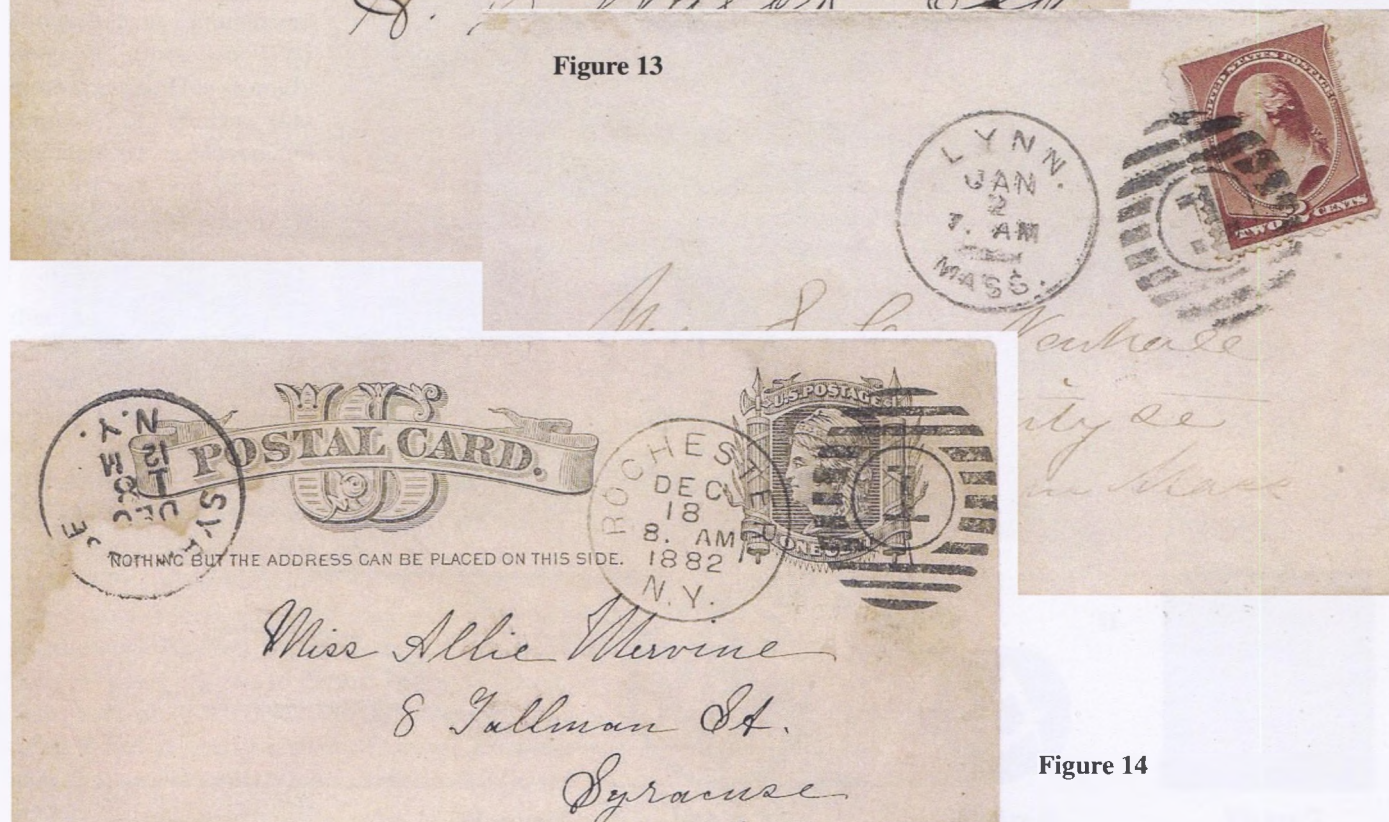 Figure 13
UNITED STATES POSTAGE
TWO 2 CENTS
LYNN.
JAN
2
7. AM
MASS.
Mass
US
POSTAL CARD.
NOTHING BUT THE ADDRESS CAN BE PLACED ON THIS SIDE.
U.S. POSTAGE
ONE CENT
ROCHESTER
DEC
18
8. AM
1882
N.Y.
1
N.Y.
Miss Allie Mervine
8 Tallman St.
Syracuse
Figure 14